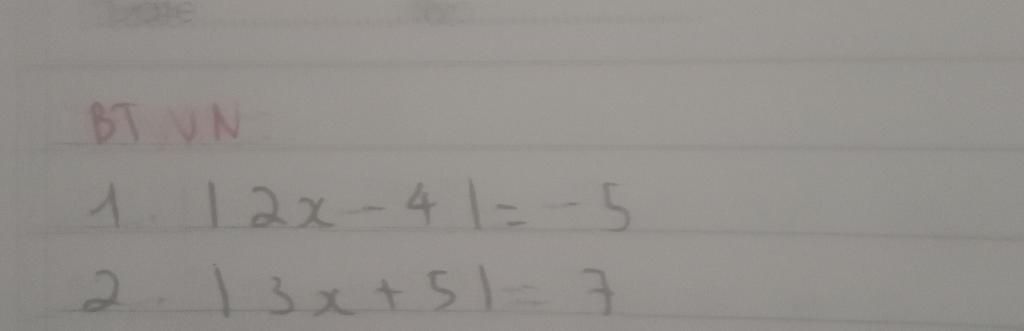 Date
No
BT VN
1. |2x - 4| = -5
2. |3x + 5| = 7